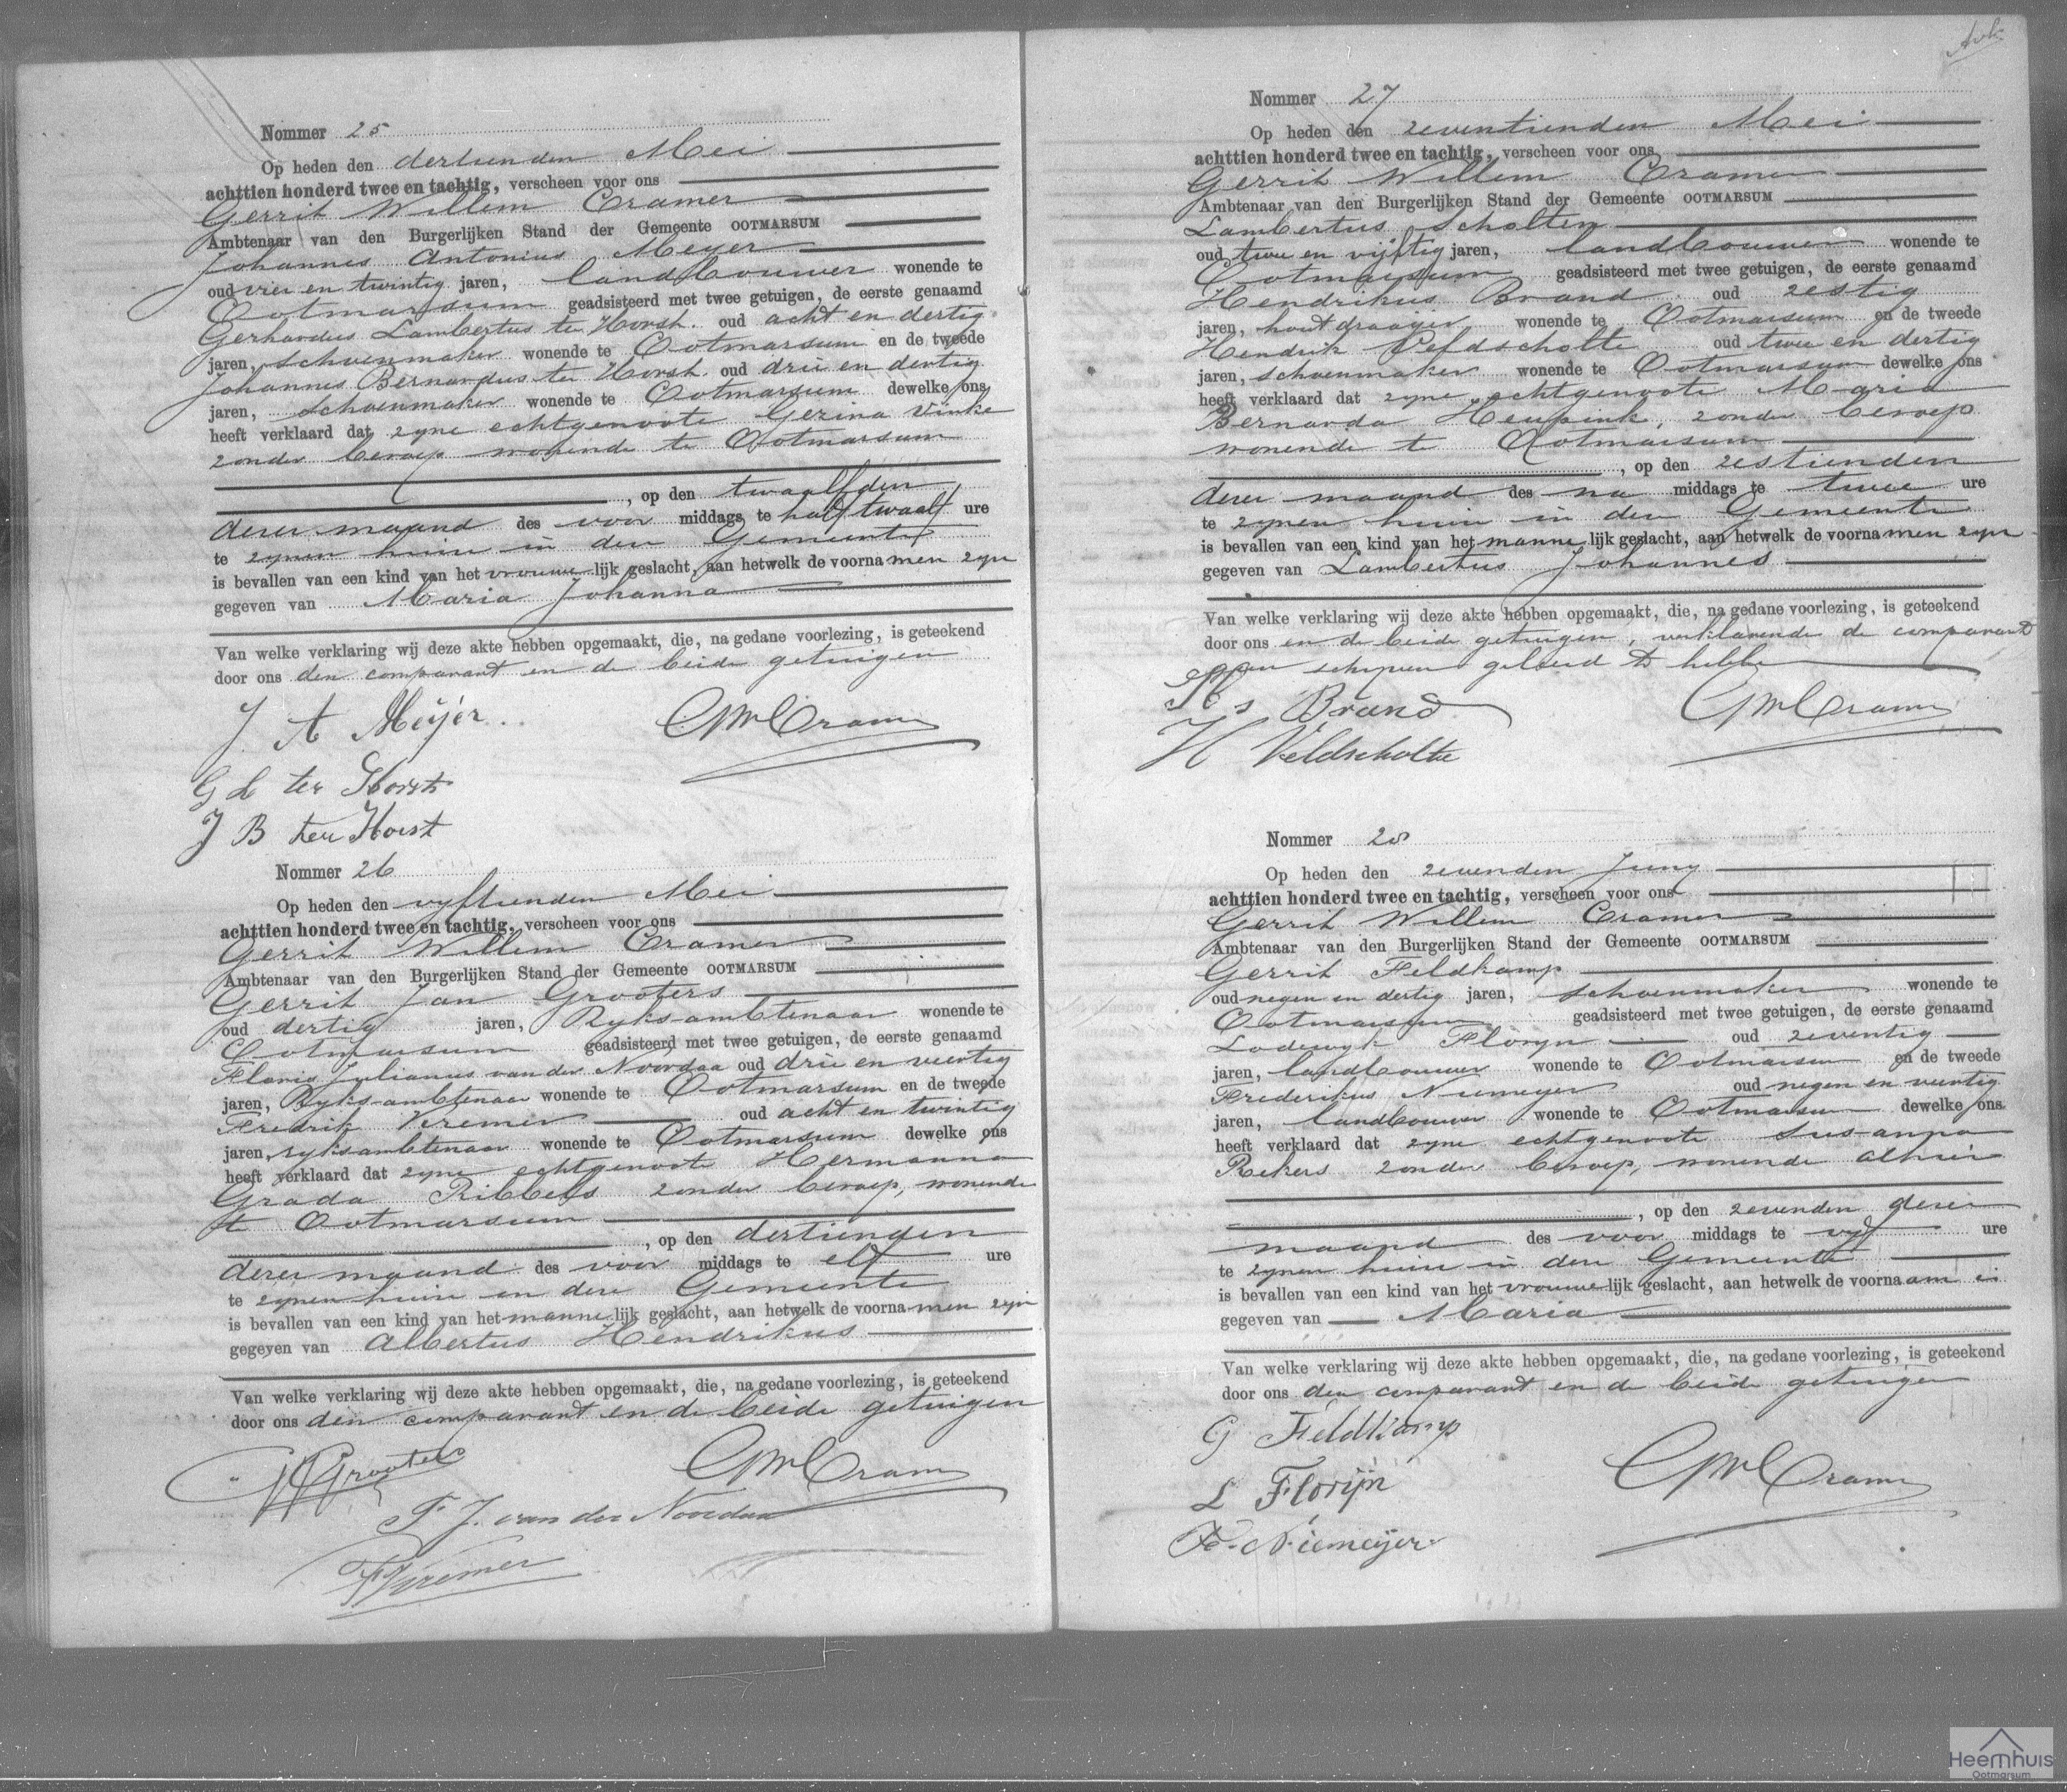 Nommer 25
Op heden den dertienden Mei
achttien honderd twee en tachtig, verscheen voor ons
Gerrit Willem Cramer
Ambtenaar van den Burgerlijken Stand der Gemeente OOTMARSUM
Johannes Antonius Meyer
oud vier en twintig jaren, landbouwer wonende te
Ootmarsum geadsisteerd met twee getuigen, de eerste genaamd
Gerhardus Lambertus ter Horst oud acht en dertig
jaren, schoenmaker wonende te Ootmarsum en de tweede
Johannes Bernardus ter Horst oud drie en dertig
jaren, schoenmaker wonende te Ootmarsum dewelke ons
heeft verklaard dat zyne echtgenoote Gezina Vinke
zonder beroep wonende te Ootmarsum
, op den twaalfden
dezer maand des voor middags te half twaalf ure
te zynen huize in deze Gemeente
is bevallen van een kind van het vrouwe lijk geslacht, aan hetwelk de voorna men zyn
gegeven van Maria Johanna
Van welke verklaring wij deze akte hebben opgemaakt, die, na gedane voorlezing, is geteekend
door ons den comparant en de beide getuigen
J. A Meijer GWCramer
G L ter Horst
J B ter Horst
Nommer 26
Op heden den vyftienden Mei
achttien honderd twee en tachtig, verscheen voor ons
Gerrit Willem Cramer
Ambtenaar van den Burgerlijken Stand der Gemeente OOTMARSUM
Gerrit Jan Grooters
oud dertig jaren, Ryksambtenaar wonende te
Ootmarsum geadsisteerd met twee getuigen, de eerste genaamd
Floris Julianus van der Noordaa oud drie en veertig
jaren, Ryksambtenaar wonende te Ootmarsum en de tweede
Fredrik Kremer oud acht en twintig
jaren, ryksambtenaar wonende te Ootmarsum dewelke ons
heeft verklaard dat zyne echtgenoote Hermanna
Grada Ribbels zonder beroep, wonende
te Ootmarsum
, op den dertienden
dezer maand des voor middags te elf ure
te zynen huize in deze Gemeente
is bevallen van een kind van het manne lijk geslacht, aan hetwelk de voorna men zyn
gegeven van Albertus Hendrikus
Van welke verklaring wij deze akte hebben opgemaakt, die, na gedane voorlezing, is geteekend
door ons den comparant en de beide getuigen
GJGrooters GWCramer
F. J. van der Noordaa
FKremer
Nommer 27
Op heden den zeventienden Mei
achttien honderd twee en tachtig, verscheen voor ons
Gerrit Willem Cramer
Ambtenaar van den Burgerlijken Stand der Gemeente OOTMARSUM
Lambertus Scholten
oud twee en vijftig jaren, landbouwer wonende te
Ootmarsum geadsisteerd met twee getuigen, de eerste genaamd
Hendrikus Brand oud zestig
jaren, houtdraaijer wonende te Ootmarsum en de tweede
Hendrik Veldscholte oud twee en dertig
jaren, schoenmaker wonende te Ootmarsum dewelke ons
heeft verklaard dat zyne echtgenoote Maria
Bernarda Heupink, zonder beroep
wonende te Ootmarsum
, op den zestienden
dezer maand des na middags te twee ure
te zynen huize in deze Gemeente
is bevallen van een kind van het manne lijk geslacht, aan hetwelk de voorna men zyn
gegeven van Lambertus Johannes
Van welke verklaring wij deze akte hebben opgemaakt, die, na gedane voorlezing, is geteekend
door ons en de beide getuigen, verklarende de comparant
geen schryven geleerd te hebben
Hs Brand GWCramer
H Veldscholte
Nommer 28
Op heden den zevenden Juny
achttien honderd twee en tachtig, verscheen voor ons
Gerrit Willem Cramer
Ambtenaar van den Burgerlijken Stand der Gemeente OOTMARSUM
Gerrit Feldkamp
oud negen en dertig jaren, schoenmaker wonende te
Ootmarsum geadsisteerd met twee getuigen, de eerste genaamd
Lodewyk Floryn oud zeventig
jaren, landbouwer wonende te Ootmarsum en de tweede
Frederikus Niemeyer oud negen en veertig
jaren, landbouwer wonende te Ootmarsum dewelke ons
heeft verklaard dat zyne echtgenoote Susanna
Rekers zonder beroep, wonende alhier
, op den zevenden dezer
maand des voor middags te vyf ure
te zynen huize in deze Gemeente
is bevallen van een kind van het vrouwe lijk geslacht, aan hetwelk de voorna am is
gegeven van Maria
Van welke verklaring wij deze akte hebben opgemaakt, die, na gedane voorlezing, is geteekend
door ons den comparant en de beide getuigen
G Feldkamp
L Florijn GWCramer
Fr. Niemeijer
Heemhuis
Ootmarsum